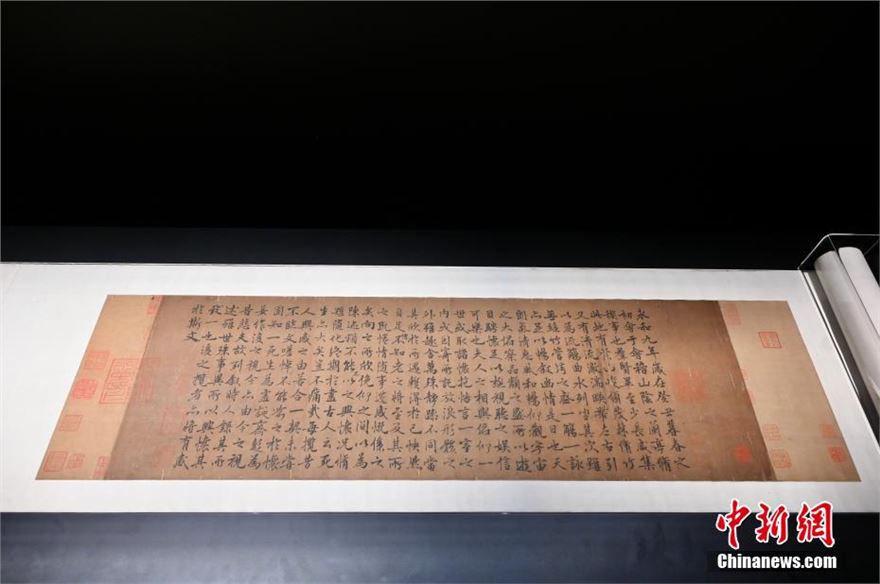 永和九年歲在癸丑暮春之
初會于會稽山陰之蘭亭脩
稧事也群賢畢至少長咸集
此地有崇山峻領茂林脩竹
又有清流激湍暎帶左右引
以為流觴曲水列坐其次雖
無絲竹管弦之盛一觴一詠
亦足以暢叙幽情是日也天
朗氣清惠風和暢仰觀宇宙
之大俯察品類之盛所以遊
目騁懷足以極視聽之娛信
可樂也夫人之相與俯仰一
世或取諸懷抱悟言一室之
内或因寄所託放浪形骸之
外雖趣舍萬殊靜躁不同當
其欣於所遇暫得於己快然
自足不知老之將至及其所
之既惓情隨事遷感慨係之
矣向之所欣俛仰之間以為
陳迹猶不能不以之興懷況脩
短隨化終期於盡古人云死
生亦大矣豈不痛哉每攬昔
人興感之由若合一契未嘗
不臨文嗟悼不能喻之於懷
固知一死生為虛誕齊彭殤為
妄作後之視今亦由今之視
昔悲夫故列叙時人錄其所
述雖世殊事異所以興懷其
致一也後之攬者亦將有感
於斯文
中新網
Chinanews.com